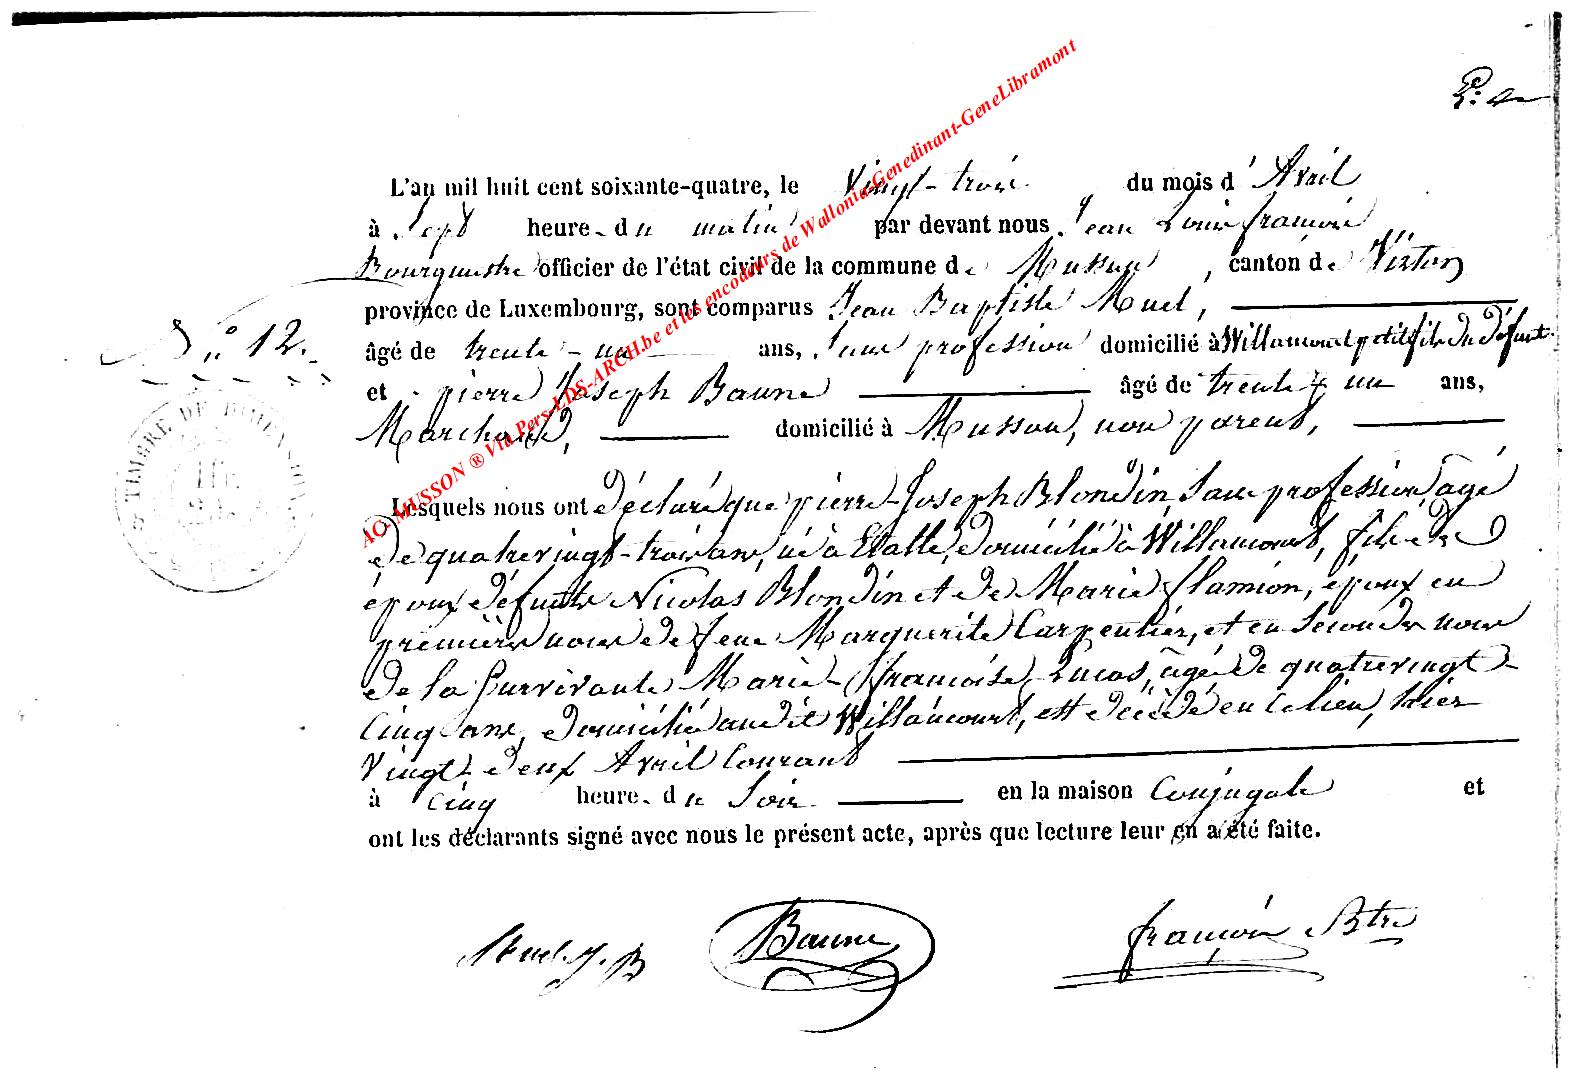 L'an mil huit cent soixante-quatre, le Vingt-trois du mois d'Avril
à Sept heure du matin par devant nous Jean Louis françois
Bourgmestre officier de l'état civil de la commune de Musson, canton de Virton
province de Luxembourg, sont comparus Jean Baptiste Muel,
N.° 12.
âgé de trente-un ans, Sans profession domicilié à Willancourt petit fils du défunt
et pierre Joseph Baune âgé de trente-un ans,
Marchand, domicilié à Musson, non parent,
TIMBRE DE DIMEN
Lesquels nous ont déclaré que pierre-Joseph Blondin, Sans profession âgé
de quatrevingt-trois ans, né à Etalle, domicilié à Willancourt, fils de
époux défunts Nicolas Blondin et de Marie flamion, époux en
premières noces de feue Marguerite Carpentier, et en Secondes noces
de la Survivante Marie-françoise Lucas, âgée de quatrevingt-
Cinq ans, domiciliée audit Willancourt, est décédé en ce lieu, hier
Vingt-deux Avril Courant
à cinq heure du Soir en la maison Conjugale et
ont les déclarants signé avec nous le présent acte, après que lecture leur en a été faite.
Muel J. B Baune françois Btre
AC MUSSON ® Via Pers-LDS-ARCH.be et les encodeurs de Wallonia-Genedinant-GeneLibramont